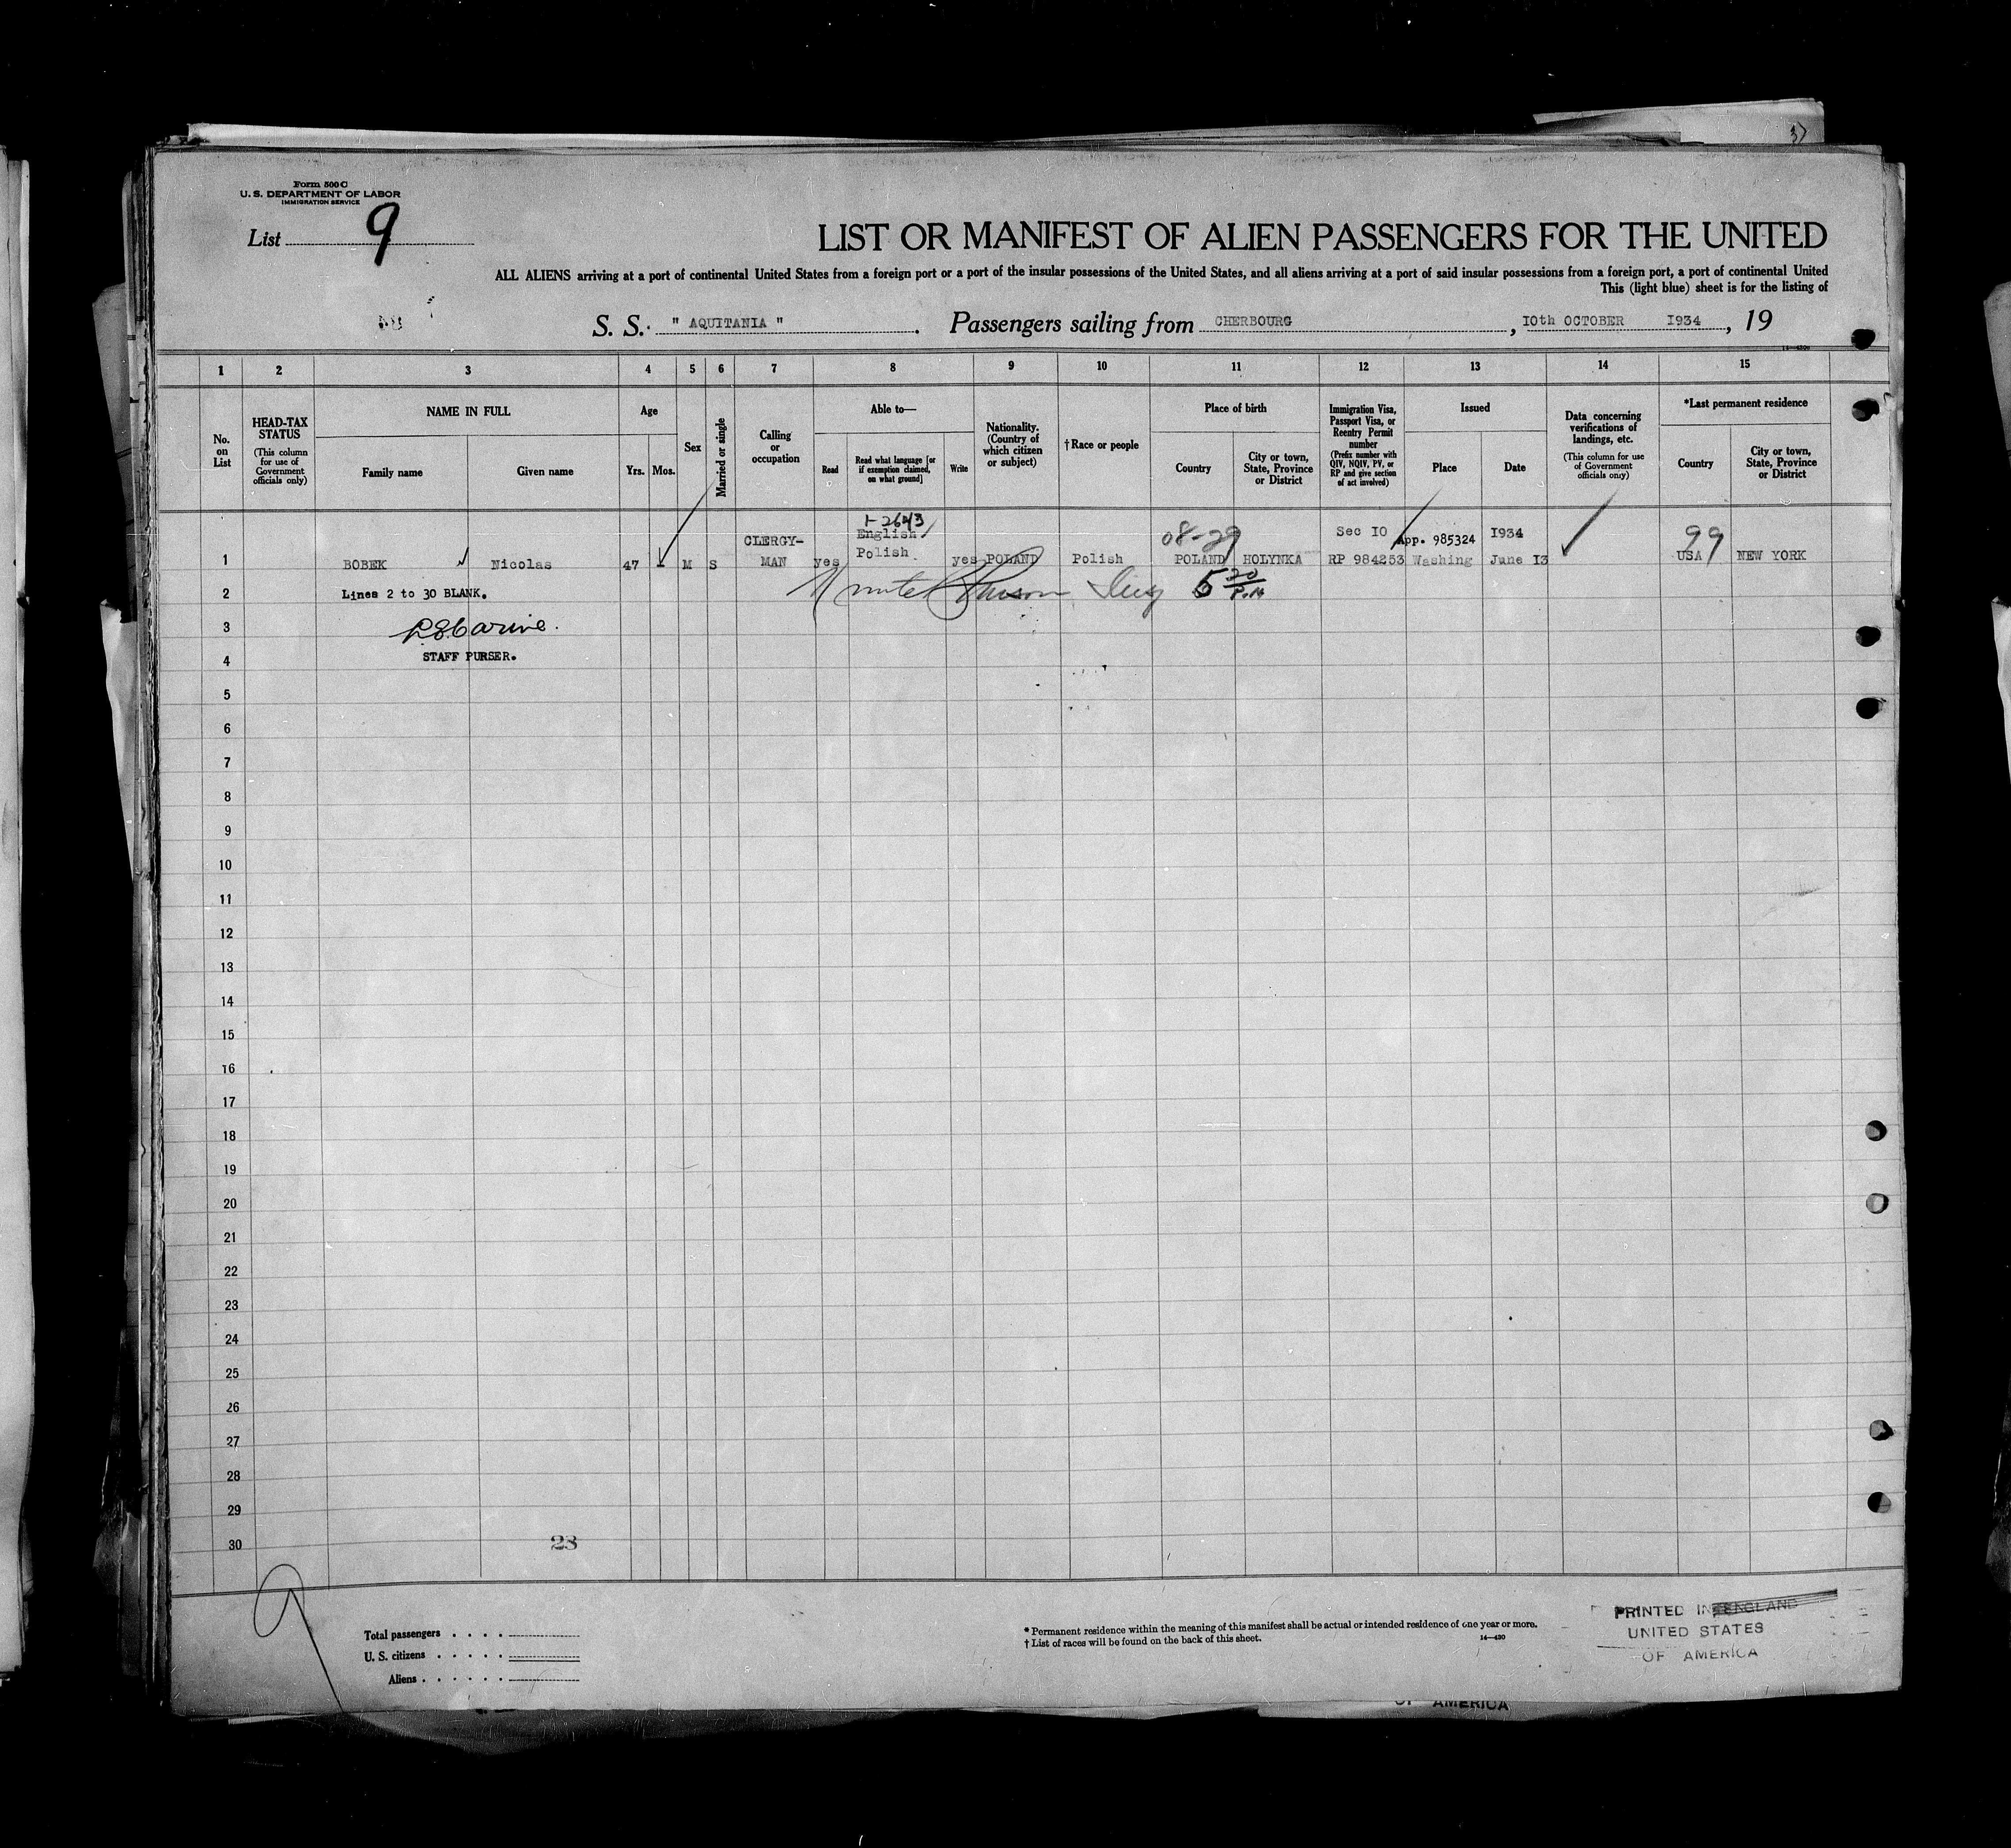 37
Form 500 C
U. S. DEPARTMENT OF LABOR
IMMIGRATION SERVICE
List 9
LIST OR MANIFEST OF ALIEN PASSENGERS FOR THE UNITED
ALL ALIENS arriving at a port of continental United States from a foreign port or a port of the insular possessions of the United States, and all aliens arriving at a port of said insular possessions from a foreign port, a port of continental United
This (light blue) sheet is for the listing of
S. S. " AQUITANIA " . Passengers sailing from CHERBOURG , 10th OCTOBER 1934 , 19
1 2 3 4 5 6 7 8 9 10 11 12 13 14 15
No. on List
HEAD-TAX STATUS (This column for use of Government officials only)
NAME IN FULL
Family name
Given name
Age
Yrs. Mos.
Sex
Married or single
Calling or occupation
Able to—
Read
Read what language [or if exemption claimed, on what ground]
Write
Nationality. (Country of which citizen or subject)
†Race or people
Place of birth
Country
City or town, State, Province or District
Immigration Visa, Passport Visa, or Reentry Permit number (Prefix number with QIV, NQIV, PV, or RP and give section of act involved)
Issued
Place
Date
Data concerning verifications of landings, etc. (This column for use of Government officials only)
*Last permanent residence
Country
City or town, State, Province or District
1-2643
CLERGY- English 08-29 Sec 10 App. 985324 1934 99
1 BOBEK Nicolas 47 - M S MAN yes Polish yes POLAND Polish POLAND HOLYNKA RP 984253 Washing June 13 USA NEW YORK
2 Lines 2 to 30 BLANK. 5 30 P.M
3
STAFF PURSER.
4
5
6
7
8
9
10
11
12
13
14
15
16
17
18
19
20
21
22
23
24
25
26
27
28
29
30
23
9
Total passengers . . . .
U. S. citizens . . . . .
Aliens . . . . . .
* Permanent residence within the meaning of this manifest shall be actual or intended residence of one year or more.
† List of races will be found on the back of this sheet.
14—430
PRINTED IN ENGLAND
UNITED STATES
OF AMERICA
OF AMERICA